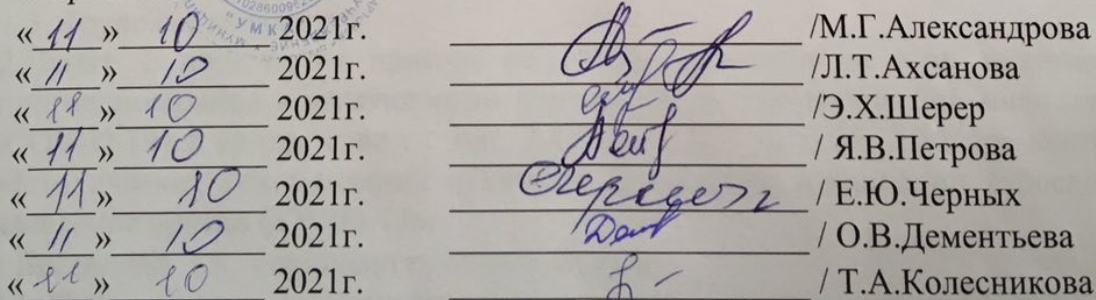 «11» 10 2021г. /М.Г.Александрова
«11» 10 2021г. /Л.Т.Ахсанова
«11» 10 2021г. /Э.Х.Шерер
«11» 10 2021г. / Я.В.Петрова
«11» 10 2021г. / Е.Ю.Черных
«11» 10 2021г. / О.В.Дементьева
«11» 10 2021г. / Т.А.Колесникова